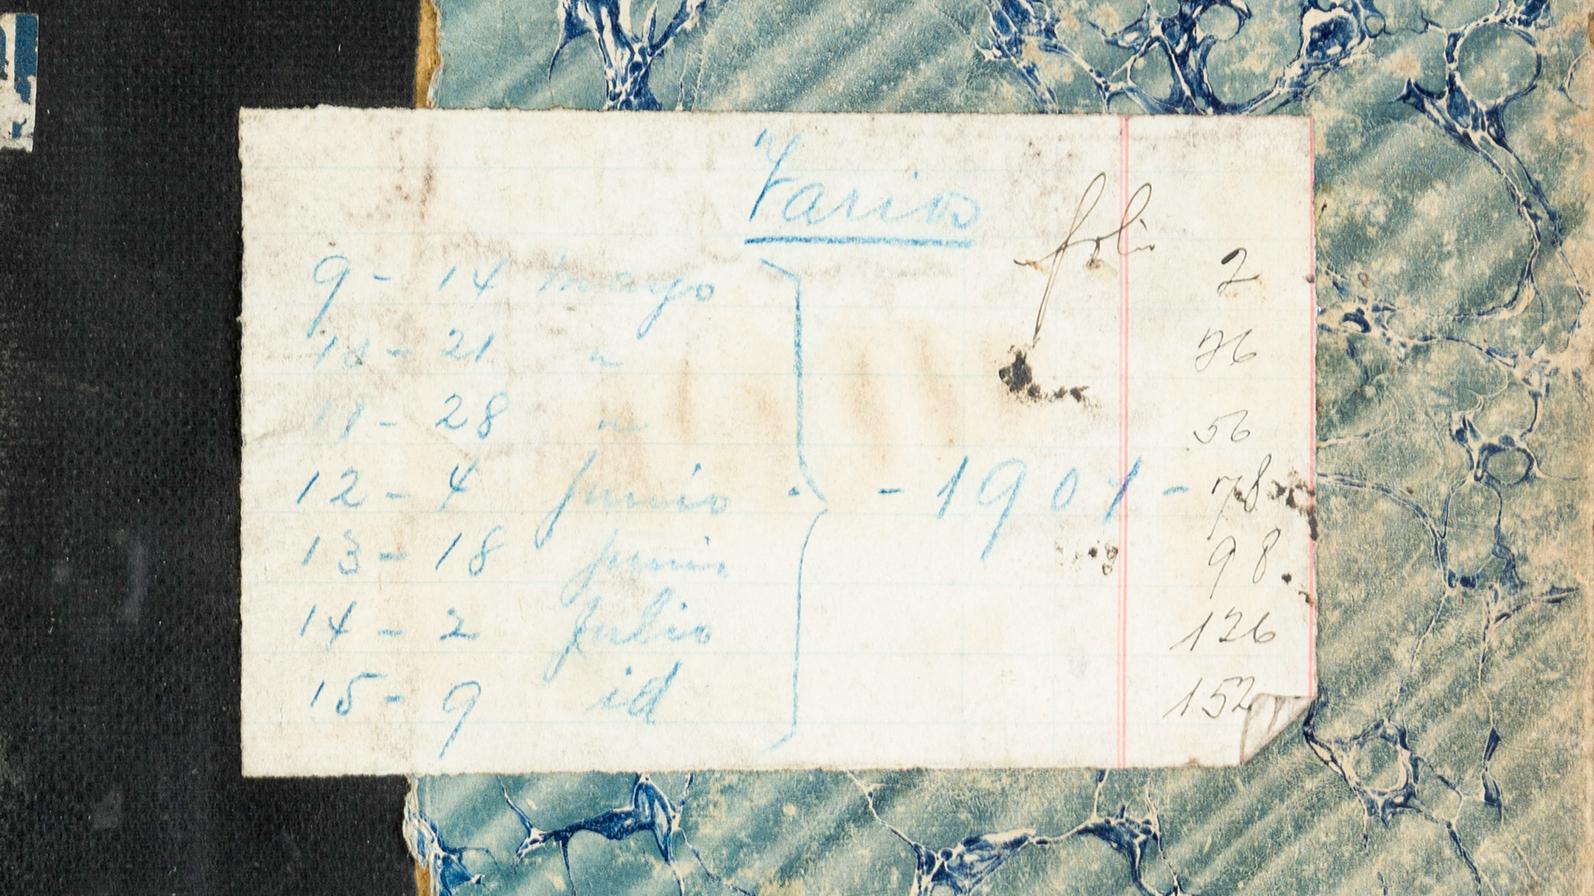 Varios
folio
9 - 14 mayo 2
10 - 21 " 
11 - 28 " 56
12 - 4 junio - 1901 - 78
13 - 18 junio 98
14 - 2 Julio 126
15 - 9 id 152